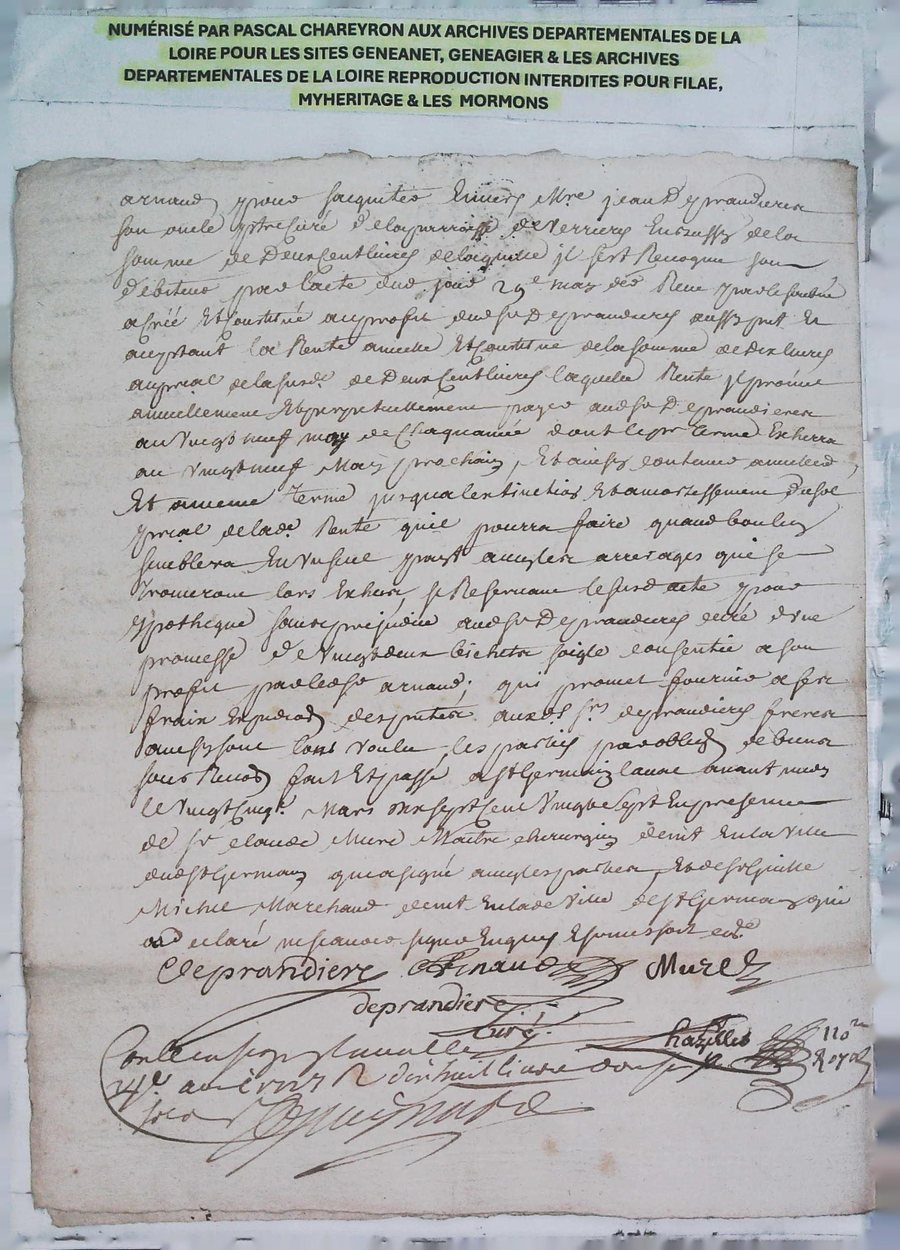 NUMÉRISÉ PAR PASCAL CHAREYRON AUX ARCHIVES DEPARTEMENTALES DE LA
LOIRE POUR LES SITES GENEANET, GENEAGIER & LES ARCHIVES
DEPARTEMENTALES DE LA LOIRE REPRODUCTION INTERDITES POUR FILAE,
MYHERITAGE & LES MORMONS
arnaud pour sacquiter Envers Mre jean Deprandieres
son oncle ptre Curé de la parroisse de Verrieres de la
somme de Deux Cent livres de laquelle jl sest Reconnu son
Debiteur par lacte dud jour 29e may
a Créé Et Constitué au profit dud sr Deprandieres aussy pnt Et
acceptant la Rente annuelle Et Constituée de la somme de dix livres
au prial de la susd. de Deux Cent livres laquelle Rente jl promet
annuellement Et perpetuellement payer aud sr Deprandieres
au Vingt neuf may de Chaque année dont le pr terme Escherra
au Vingt neuf May prochain, Et ainsy continuer
Et a meme terme jusqua lentinction Et amortissement du sol
prial de lade. Rente quil pourra faire quand bon luy
semblera En Un seul payt avec les arrerages qui se
trouveront lors Escheus se Reservant le susd acte pour
ypotheque sans prejudice aud sr Deprandieres curé dune
promesse de Vingt deux bichets seigle consentie a son
profit par led sr arnaud; qui promet fournir a ses
frais aux ds srs deprandieres freres
ainsy sont lors voulu les parties par oblig de biens
sous Renon fait Et passé a St Germain laval avant midy
le Vingt Cinqe. Mars mil sept Cent Vingt sept En presence
de sr claude Muré Maitre chirurgien demt En la Ville
dud St Germain qui a signé avec les parties Et de
Michel Marchand demt En lade Ville de St Germain qui
a declaré ne scavoir signer Enquis Et
Deprandiere Arnaud Murė
deprandiere
Curé.
Chazelles